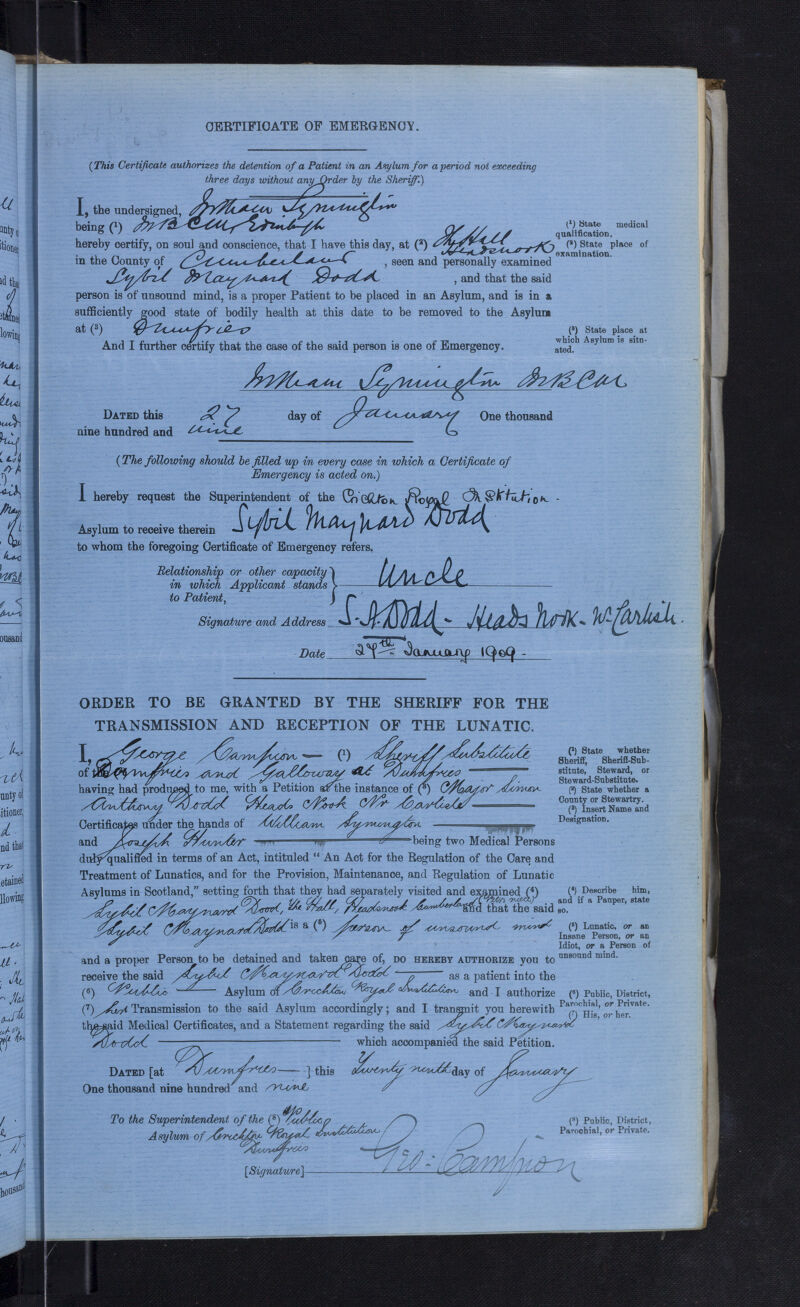 CERTIFICATE OF EMERGENCY.
(This Certificate authorizes the detention of a Patient in an Asylum for a period not exceeding
three days without any Order by the Sheriff.)
I, the undersigned, William Symington
being (¹) M B C M Edinburgh
(¹) State medical
qualification.
hereby certify, on soul and conscience, that I have this day, at (²) The Hall
Headsnook
(²) State place of
examination.
in the County of Cumberland , seen and personally examined
Sybil Maynard Dodd , and that the said
person is of unsound mind, is a proper Patient to be placed in an Asylum, and is in a
sufficiently good state of bodily health at this date to be removed to the Asylum
at (³) Dumfries
(³) State place at
which Asylum is situ-
ated.
And I further certify that the case of the said person is one of Emergency.
William Symington M B C M
DATED this 27 day of January One thousand
nine hundred and nine
(The following should be filled up in every case in which a Certificate of
Emergency is acted on.)
I hereby request the Superintendent of the Crichton Royal Institution -
Asylum to receive therein Sybil Maynard Dodd
to whom the foregoing Certificate of Emergency refers.
Relationship or other capacity
in which Applicant stands
to Patient,
Uncle
Signature and Address S. A. Dodd - Heads Nook - Nr Carlisle.
Date 27th January 1909 -
ORDER TO BE GRANTED BY THE SHERIFF FOR THE
TRANSMISSION AND RECEPTION OF THE LUNATIC.
I, George Campion — (¹) Sheriff Substitute
of Dumfries and Galloway at Dumfries
(¹) State whether
Sheriff, Sheriff-Sub-
stitute, Steward, or
Steward-Substitute.
having had produced to me, with a Petition at the instance of (³) Major Simon
Anthony Dodd Heads Nook Nr Carlisle
(²) State whether a
County or Stewartry.
(³) Insert Name and
Designation.
Certificates under the hands of William Symington
and Joseph Hunter being two Medical Persons
duly qualified in terms of an Act, intituled " An Act for the Regulation of the Care and
Treatment of Lunatics, and for the Provision, Maintenance, and Regulation of Lunatic
Asylums in Scotland," setting forth that they had separately visited and examined (⁴)
Sybil Maynard Dood, The Hall, Headsnook Cumberland and that the said
(⁴) Describe him,
and if a Pauper, state
so.
Sybil Maynard Dodd is a (⁵) person of unsound mind
(⁵) Lunatic, or an
Insane Person, or an
Idiot, or a Person of
unsound mind.
and a proper Person to be detained and taken care of, DO HEREBY AUTHORIZE you to
receive the said Sybil Maynard Dodd as a patient into the
(⁶) Public Asylum of Crichton Royal Institution and I authorize
(⁶) Public, District,
Parochial, or Private.
(⁷) her Transmission to the said Asylum accordingly; and I transmit you herewith
(⁷) His, or her.
the said Medical Certificates, and a Statement regarding the said Sybil Maynard
Dodd which accompanied the said Petition.
DATED [at Dumfries ] this Twenty ninth day of January
One thousand nine hundred and nine
To the Superintendent of the (⁸) Public
(⁸) Public, District,
Parochial, or Private.
Asylum of Crichton Royal Institution
Dumfries
[Signature] Geo: Campion